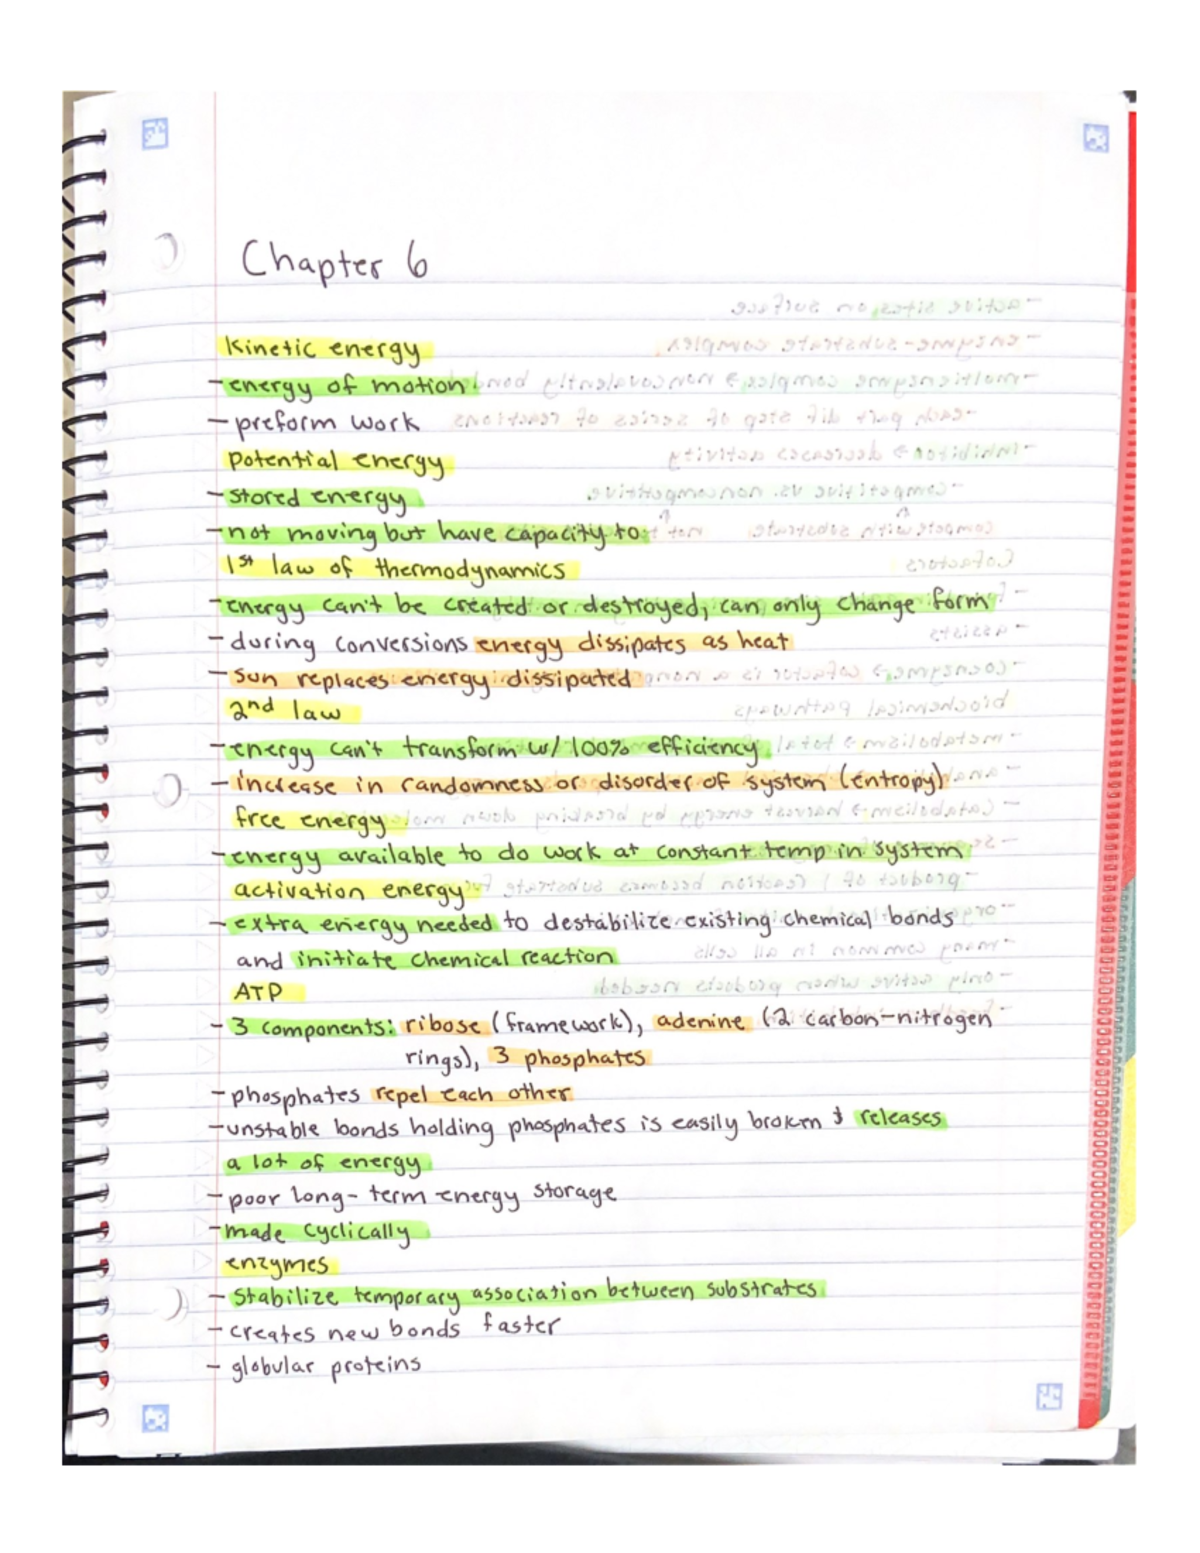 Chapter 6
Kinetic energy
- energy of motion
- preform work
Potential energy
- stored energy
- not moving but have capacity to
1st law of thermodynamics
- energy can't be created or destroyed, can only change form
- during conversions energy dissipates as heat
- Sun replaces energy dissipated
2nd law
- energy can't transform w/ 100% efficiency
- increase in randomness or disorder of system (entropy)
free energy
- energy available to do work at constant temp in system
activation energy
- extra energy needed to destabilize existing chemical bonds
and initiate chemical reaction
ATP
- 3 components: ribose (framework), adenine (2 carbon-nitrogen
rings), 3 phosphates
- phosphates repel each other
- unstable bonds holding phosphates is easily broken & releases
a lot of energy
- poor long-term energy storage
- made cyclically
enzymes
- Stabilize temporary association between substrates
- creates new bonds faster
- globular proteins